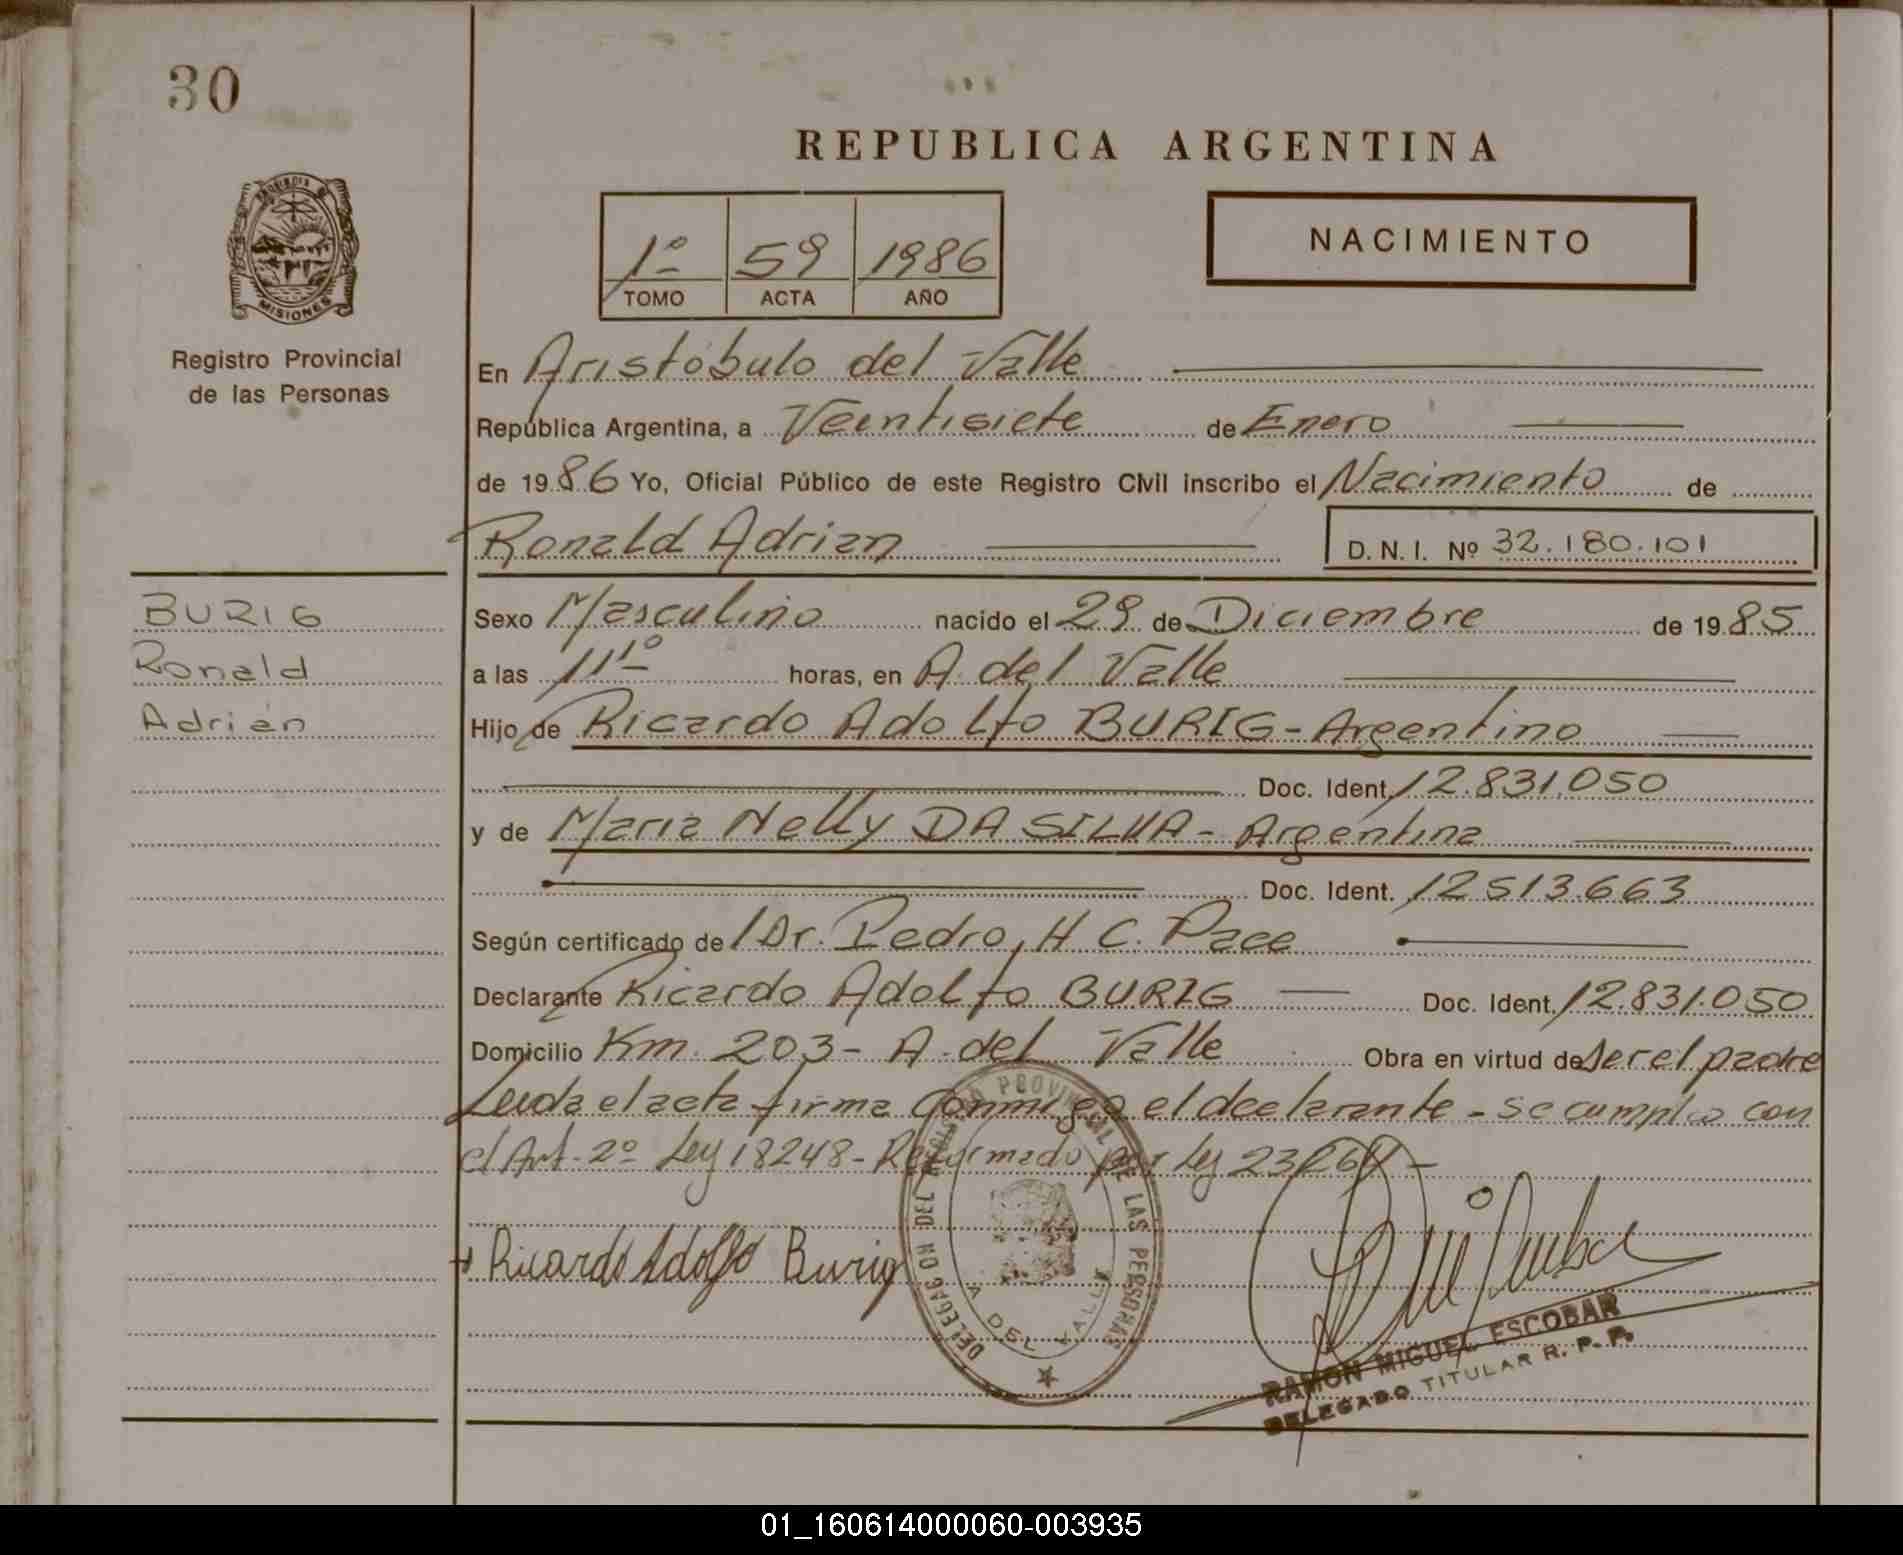 30
REPUBLICA ARGENTINA
PROVINCIA DE
MISIONES
Registro Provincial
de las Personas
1º 59 1986
TOMO ACTA AÑO
NACIMIENTO
En Aristóbulo del Valle
República Argentina, a Veintisiete de Enero
de 1986 Yo, Oficial Público de este Registro Civil inscribo el Nacimiento de
Ronald Adrian D.N.I. Nº 32.180.101
BURIG
Ronald
Adrián
Sexo Masculino nacido el 29 de Diciembre de 1985
a las 11 horas, en A. del Valle
Hijo de Ricardo Adolfo BURIG - Argentino
Doc. Ident. 12.831.050
y de Maria Nelly DA SILVA - Argentina
Doc. Ident. 12513.663
Según certificado de Dr. Pedro, H C. Pace
Declarante Ricardo Adolfo BURIG Doc. Ident. 12.831.050
Domicilio Km. 203 - A. del Valle Obra en virtud de ser el padre
Leida el acta firma conmigo el declarante - se cumplió con
el Art. 2º Ley 18248 - Reformado por Ley
Ricardo Adolfo Burig
DELEGACION DEL REGISTRO PROVINCIAL DE LAS PERSONAS
A. DEL VALLE
RAMON MIGUEL ESCOBAR
DELEGADO TITULAR R. P. P.
01_160614000060-003935